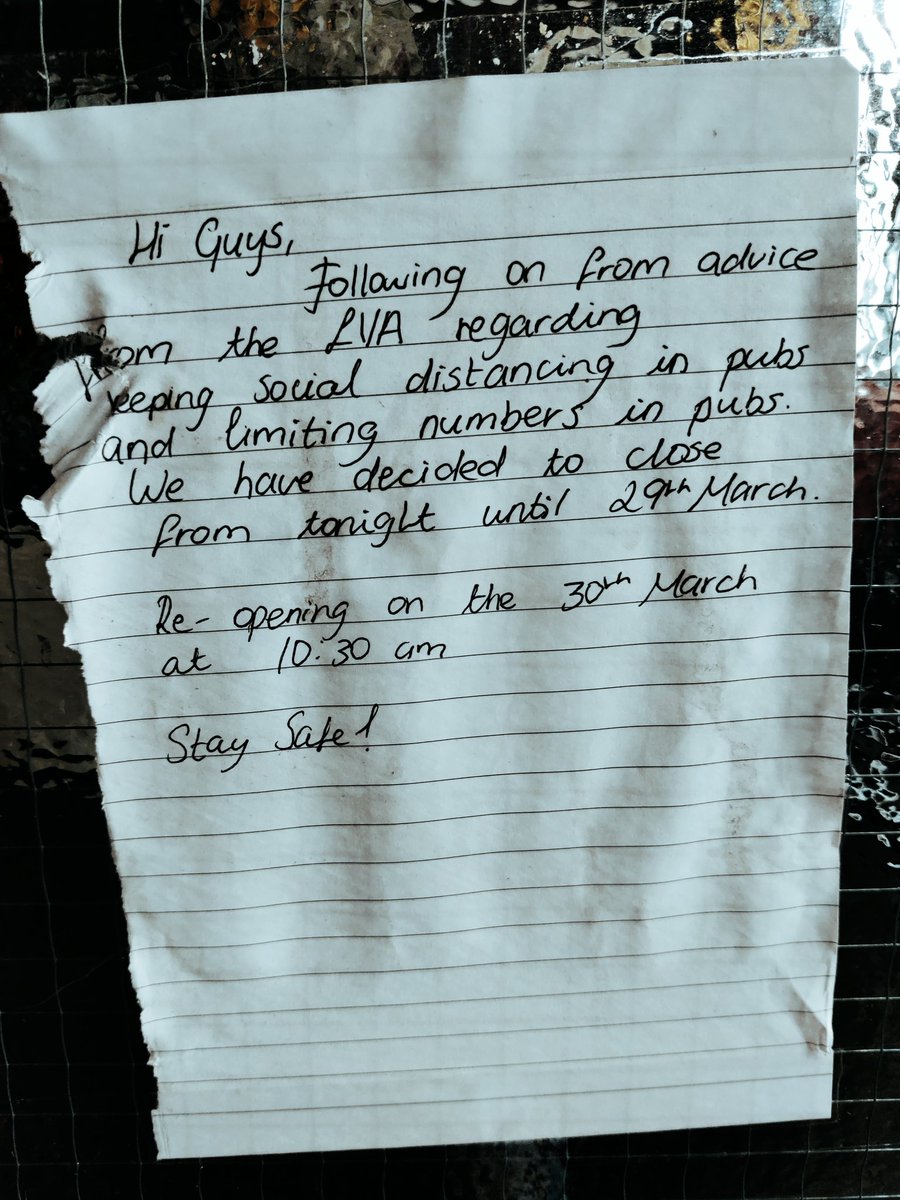 Hi Guys,
Following on from advice
from the LVA regarding
keeping social distancing in pubs
and limiting numbers in pubs.
We have decided to close
from tonight until 29th March.
Re-opening on the 30th March
at 10:30 am
Stay Safe!